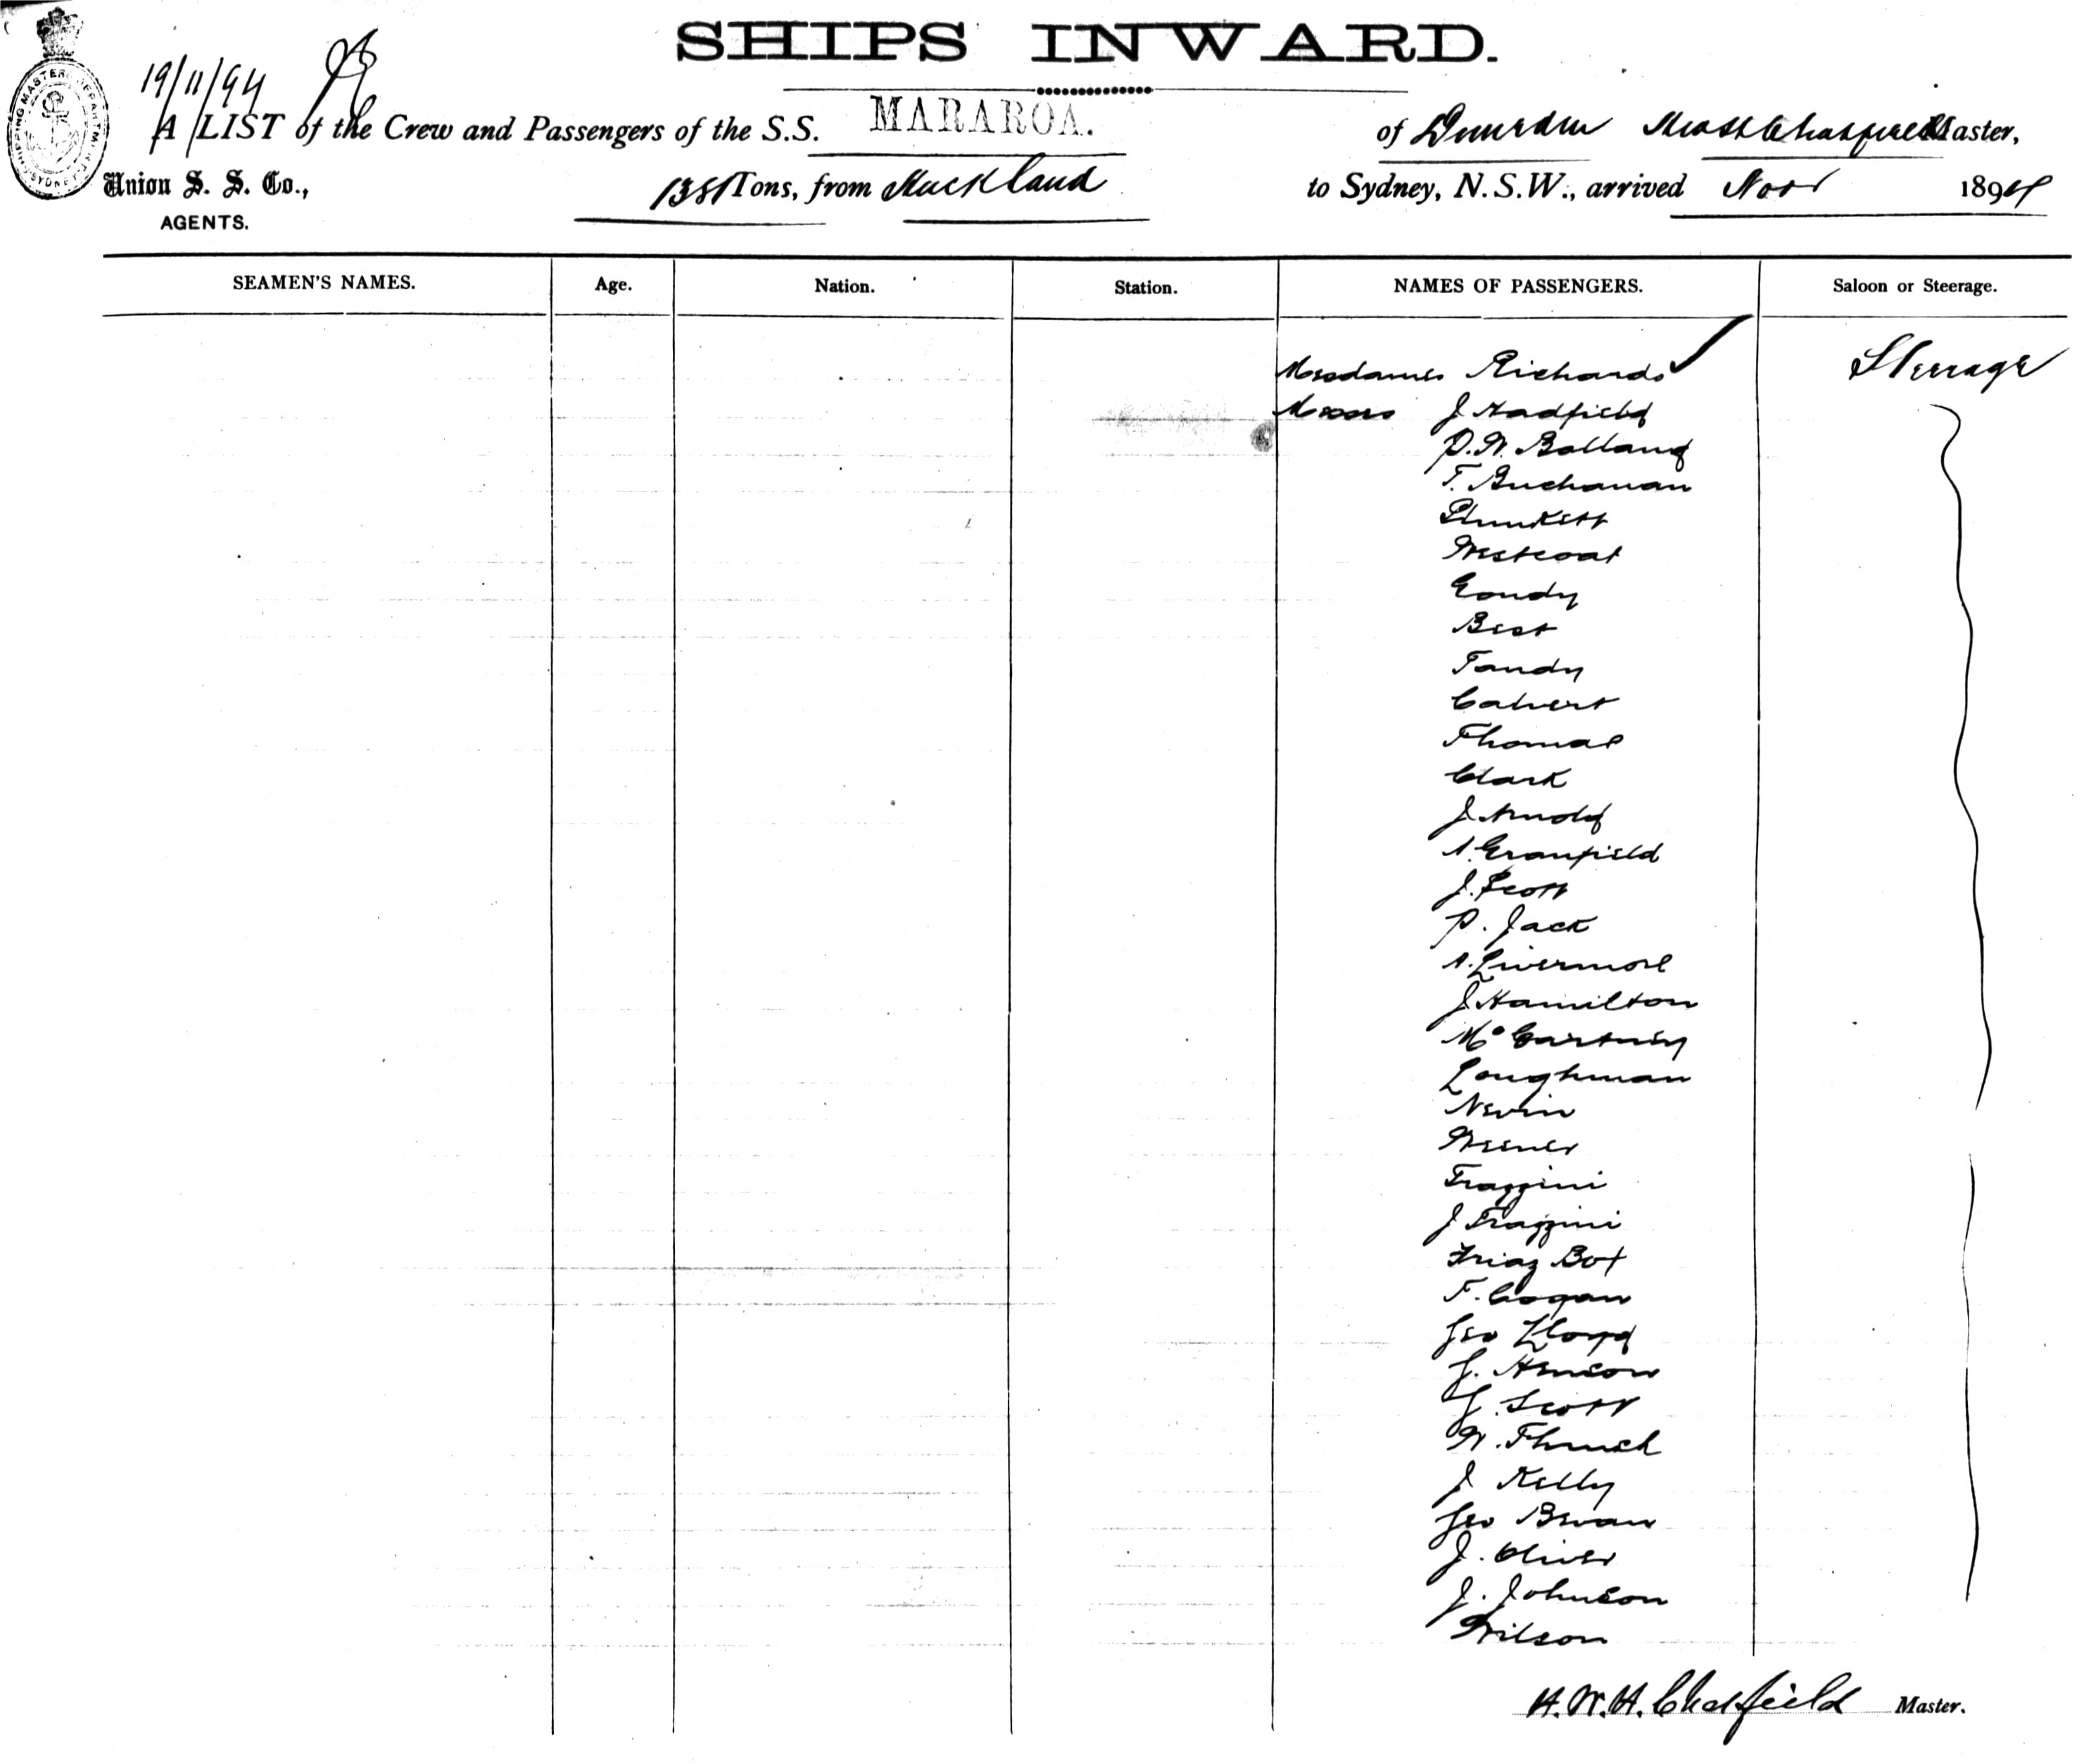 SHIPS INWARD.
19/11/94
A LIST of the Crew and Passengers of the S.S. MARAROA. of Dunedin Chatfield Master,
Union S. S. Co., 1381 Tons, from Auckland to Sydney, N.S.W., arrived Novr 1894
AGENTS.
SHIPPING MASTER DEPARTMENT SYDNEY
SEAMEN'S NAMES. Age. Nation. Station. NAMES OF PASSENGERS. Saloon or Steerage.
Mesdames Richards Steerage
Messrs J Hadfield
P.W. Bolland
T. Buchanan
Plunkett
Westcoat
Goudy
Best
Tandy
Calvert
Thomas
Clark
J. Arnold
A. Granfield
J. Scott
P. Jack
A. Livermore
J Hamilton
McCartney
Loughman
Nevin
Weener
Fraggini
J Fraggini
Box
F. Cogan
Geo Lloyd
J. Henson
J. Scott
W. Thrush
J Kelly
Geo Bevan
J. Oliver
J. Johnson
Wilson
H.W.H. Chatfield Master.